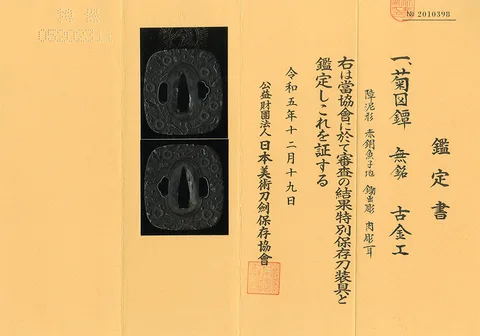 № 2010398
鑑定書
一、菊図鐔 無銘 古金工
障泥形 赤銅魚子地 鋤出彫 肉彫 耳
右は當協會に於て審査の結果特別保存刀装具と
鑑定しこれを証する
令和五年十二月十九日
公益財團法人 日本美術刀劍保存協會